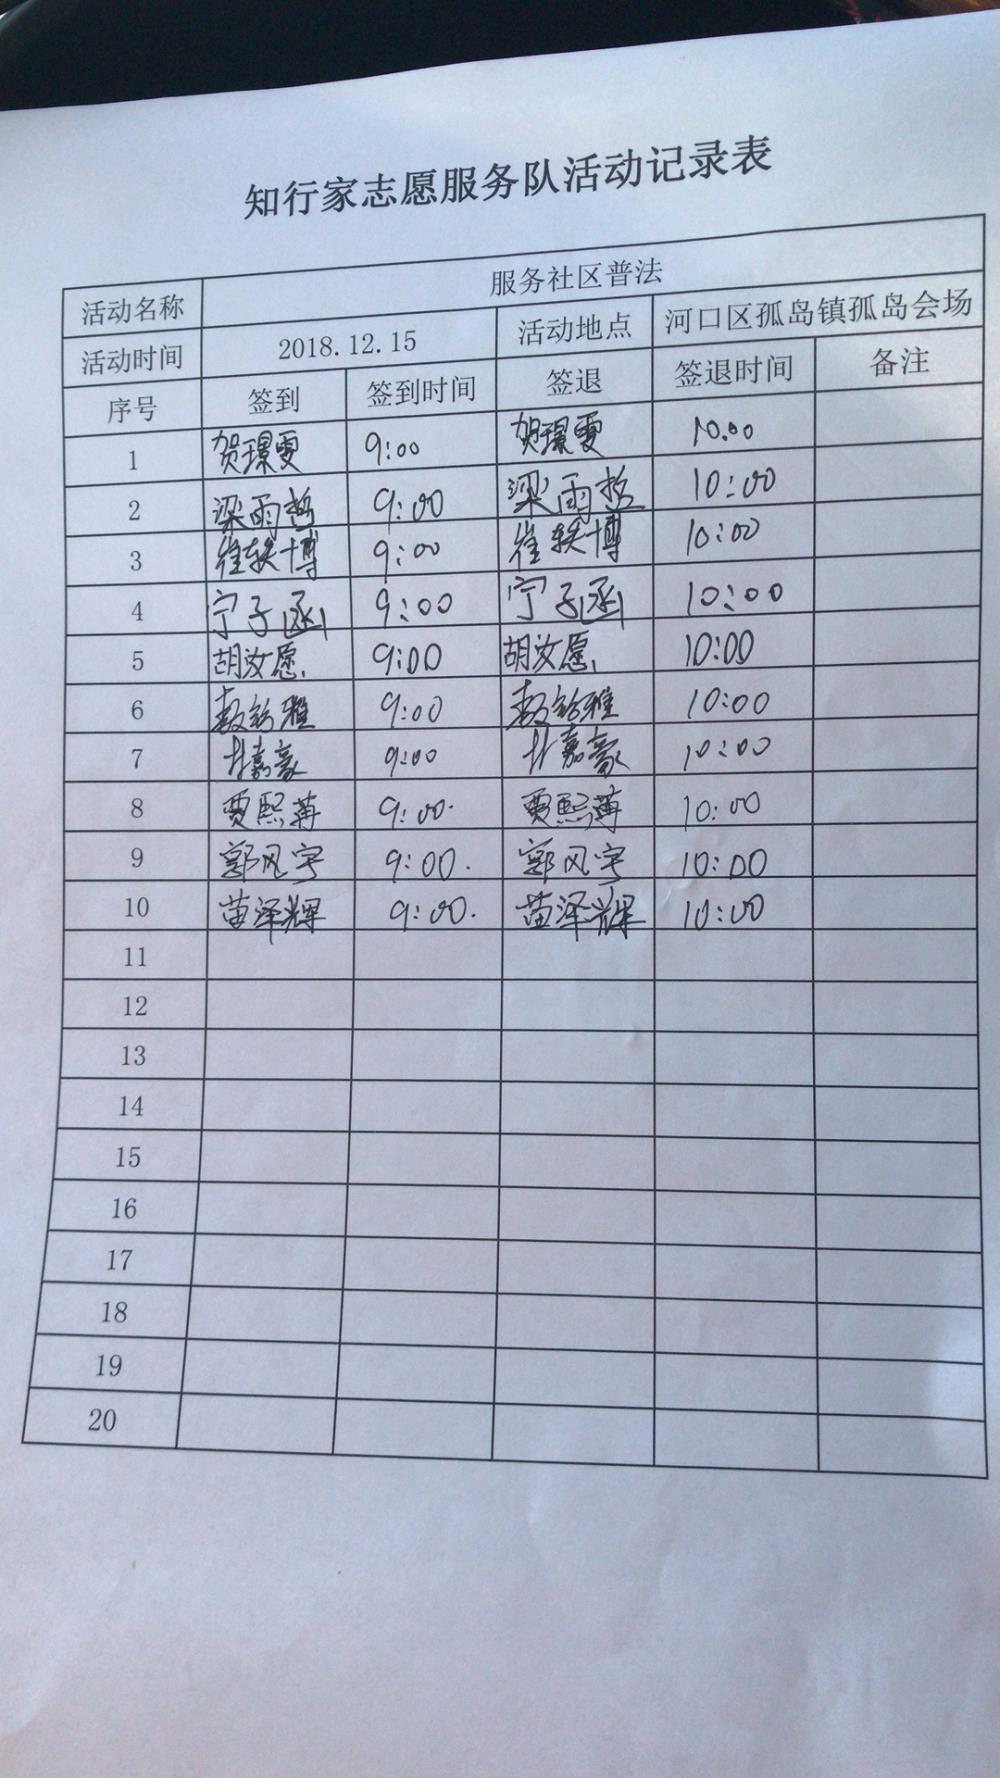 知行家志愿服务队活动记录表
活动名称 服务社区普法
活动时间 2018.12.15 活动地点 河口区孤岛镇孤岛会场
序号 签到 签到时间 签退 签退时间 备注
1 贺璟雯 9:00 贺璟雯 10.00
2 梁雨哲 9:00 梁雨哲 10:00
3 崔轶博 9:00 崔轶博 10:00
4 宁子函 9:00 宁子函 10:00
5 胡汝愿 9:00 胡汝愿 10:00
6 9:00 10:00
7 嘉豪 9:00 嘉豪 10:00
8 贾熙 9:00 贾熙 10:00
9 郭风宇 9:00. 郭风宇 10:00
10 苗泽辉 9:00. 苗泽辉 10:00
11
12
13
14
15
16
17
18
19
20